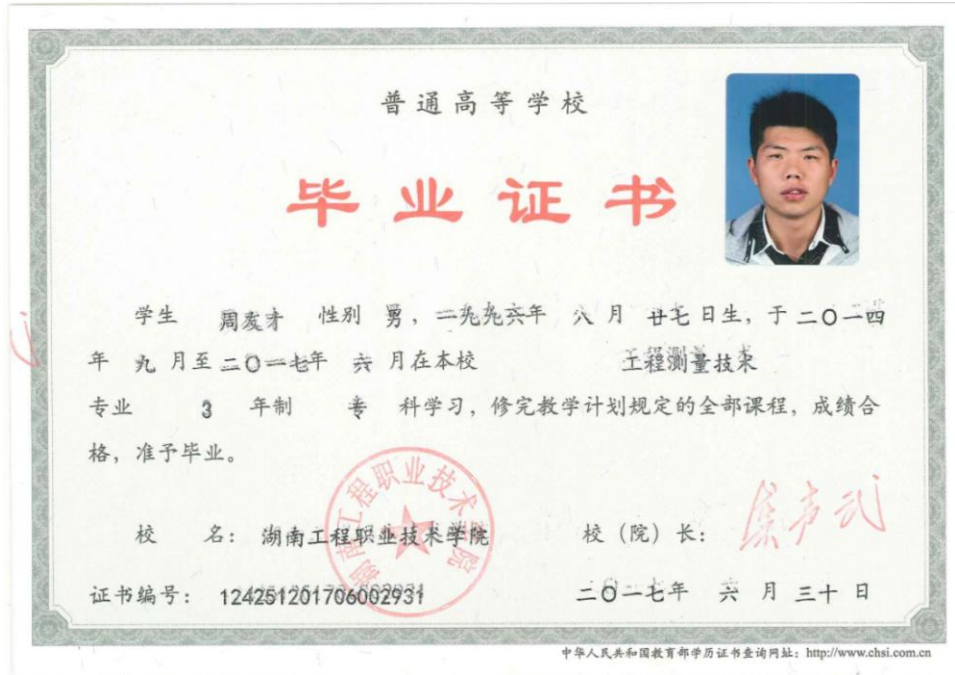 普通高等学校
毕业证书
学生 周发才 性别 男，一九九六年 八 月 廿七日生，于二〇一四
年 九 月至二〇一七年 六 月在本校 工程测量技术
专业 3 年制 专 科学习，修完教学计划规定的全部课程，成绩合
格，准予毕业。
校 名：湖南工程职业技术学院 校（院）长：
湖南工程职业技术学院
证书编号：124251201706002931 二〇一七年 六 月 三十 日
中华人民共和国教育部学历证书查询网址：http://www.chsi.com.cn